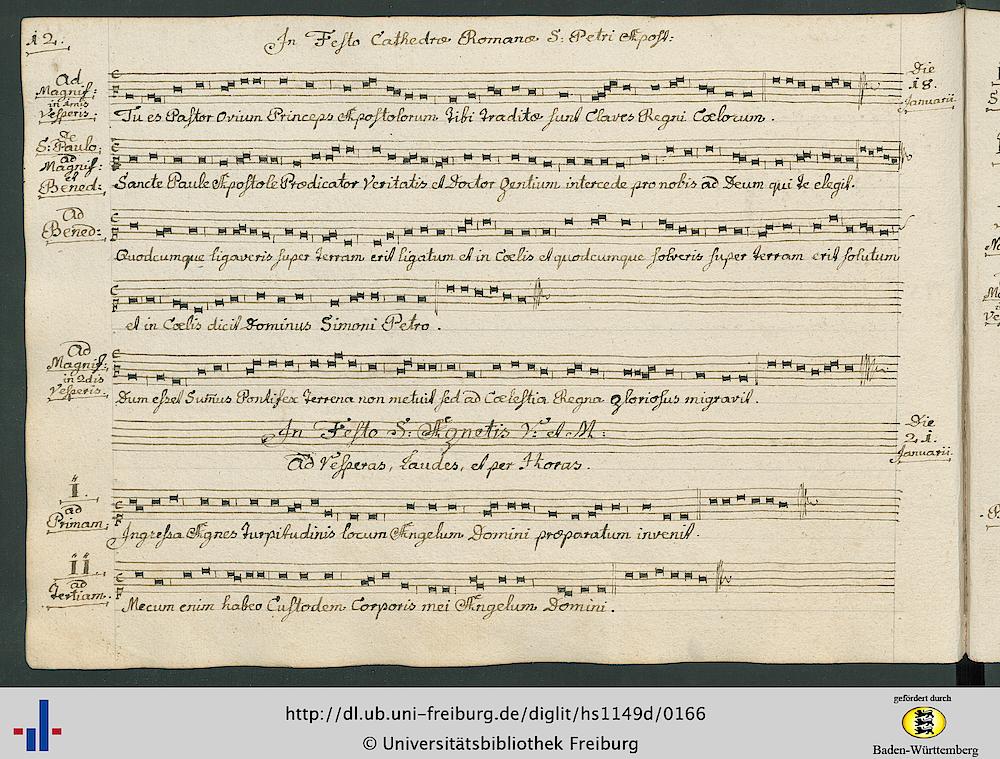 12.
In Festo Cathedræ Romanæ S: Petri Apost:
Ad Magnif: in 1mis Vesperis.
Die 18. Januarii.
Tu es Pastor Ovium Princeps Apostolorum Tibi traditæ sunt Claves Regni Cœlorum.
De S: Paulo: ad Magnif: et Bened:
Sancte Paule Apostole Prædicator Veritatis et Doctor Gentium intercede pro nobis ad Deum qui te elegit.
Ad Bened:
Quodcumque ligaveris super terram erit ligatum et in Cœlis et quodcumque solveris super terram erit solutum
et in Cœlis dicit Dominus Simoni Petro.
Ad Magnif: in 2dis Vesperis.
Dum esset Sum̃us Pontifex terrena non metuit sed ad Cœlestia Regna gloriosus migravit.
In Festo S: Agnetis V: et M:
Die 21. Januarii.
Ad Vesperas, Laudes, et per Horas.
I. ad Primam.
Ingressa Agnes turpitudinis locum Angelum Domini præparatum invenit.
II ad Tertiam.
Mecum enim habeo Custodem Corporis mei Angelum Domini.
http://dl.ub.uni-freiburg.de/diglit/hs1149d/0166
© Universitätsbibliothek Freiburg
gefördert durch
Baden-Württemberg